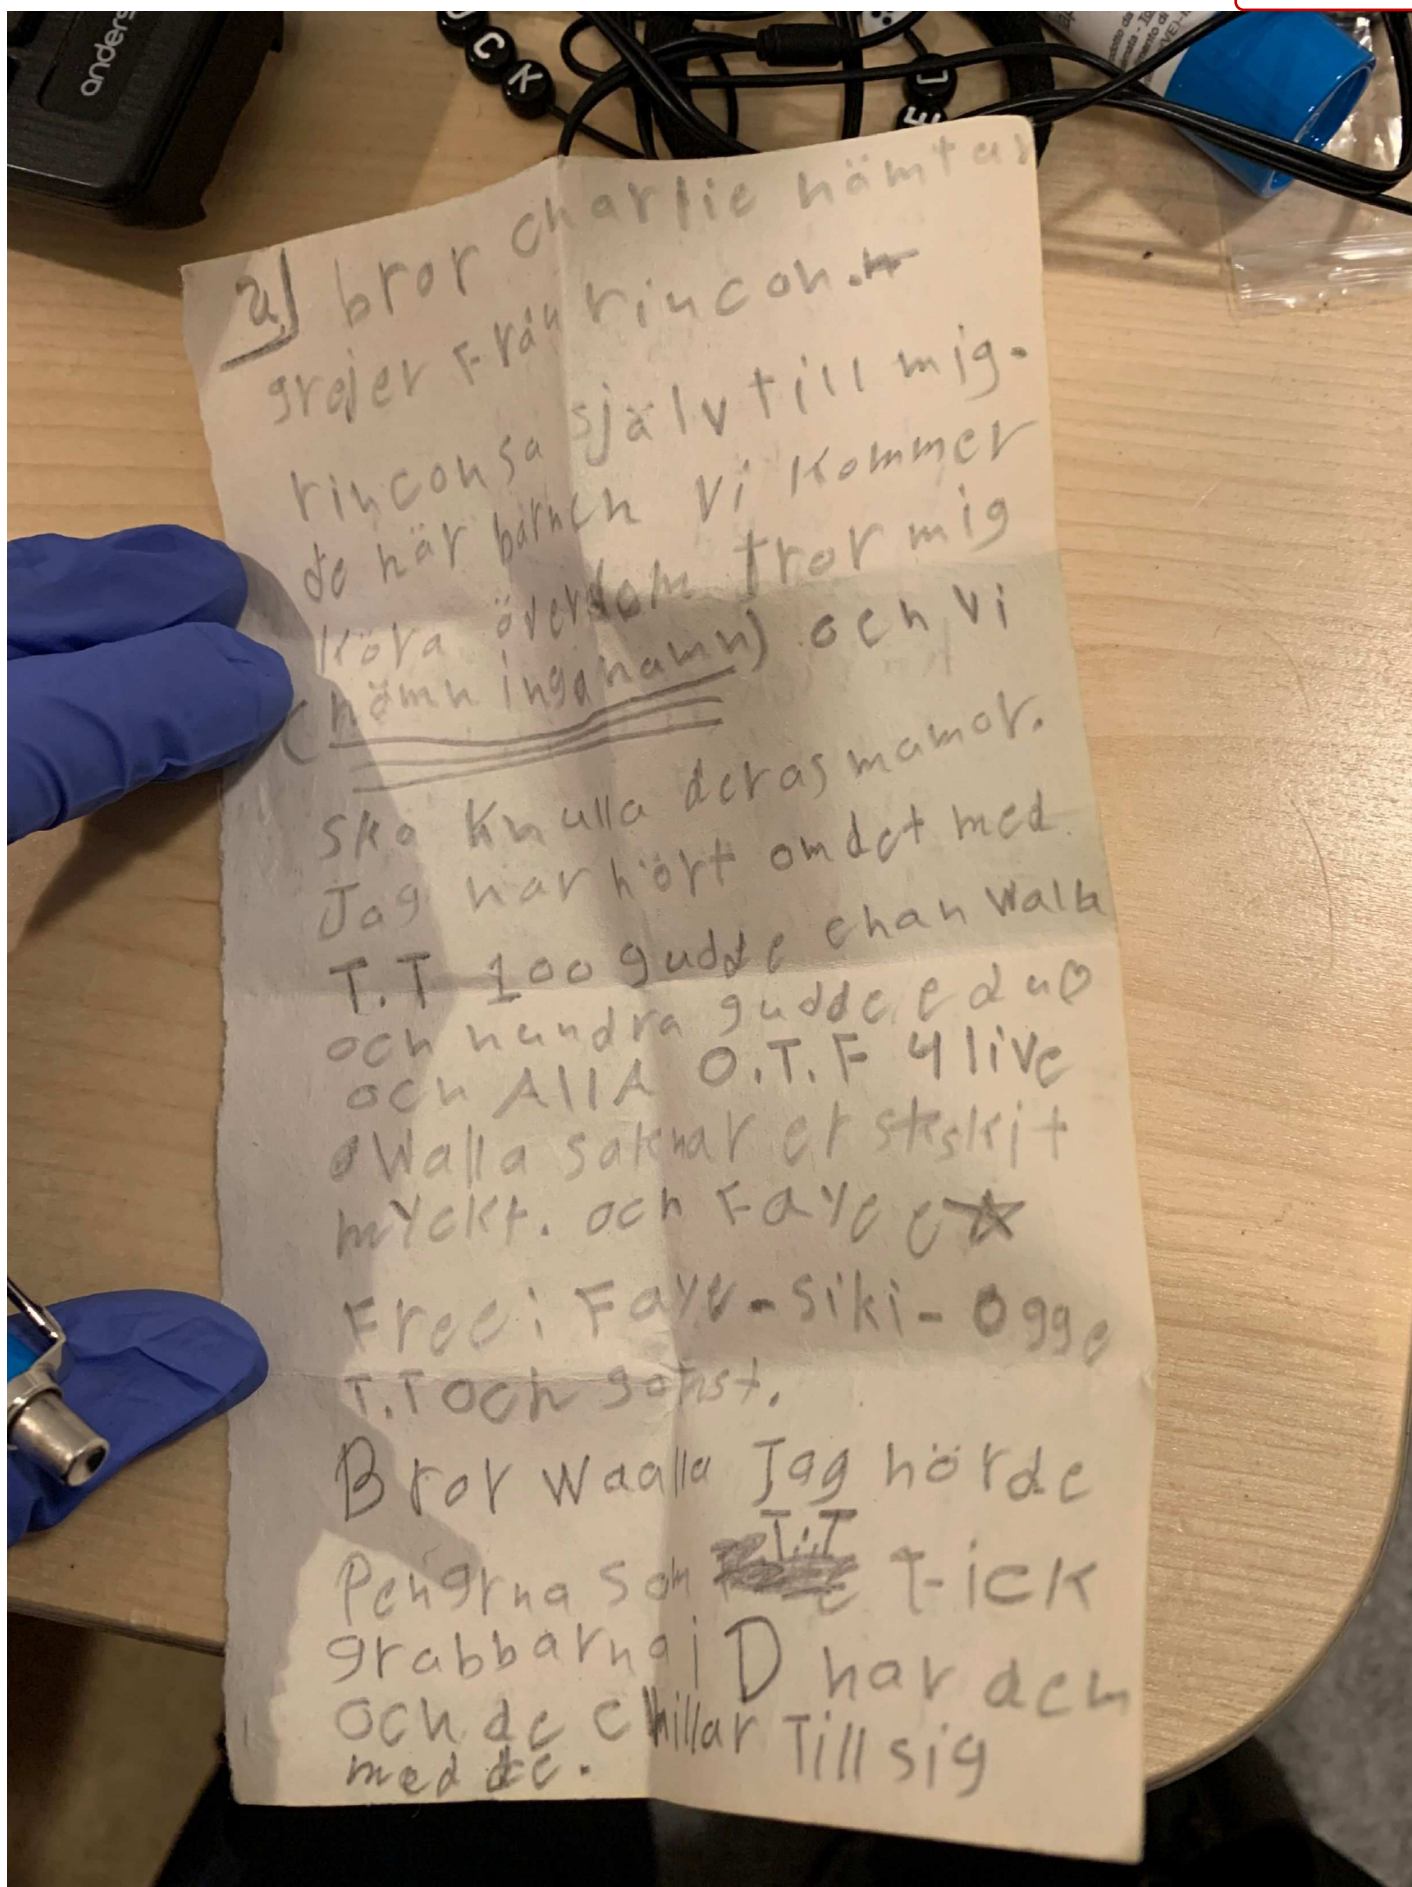 anders
CK
2) bror charlie hämtar
grejer Från rincon.
rincon sa själv till mig.
de här barnen vi kommer
köra över dom tror mig
(nämn inga namn) och vi
ska knulla deras mamor.
Jag har hört om det med
T.T 100 gudde ehan Walla
och hundra gudde e du
och AllA O.T.F 4 live
Walla saknar er skit
myckt. och Faye e
Free: Faye-siki-Ogge
T.T och
Bror Waalla Jag hörde
T.T
Pengrna som Fick
grabbarna i D har den
och de chillar Till sig
med de.